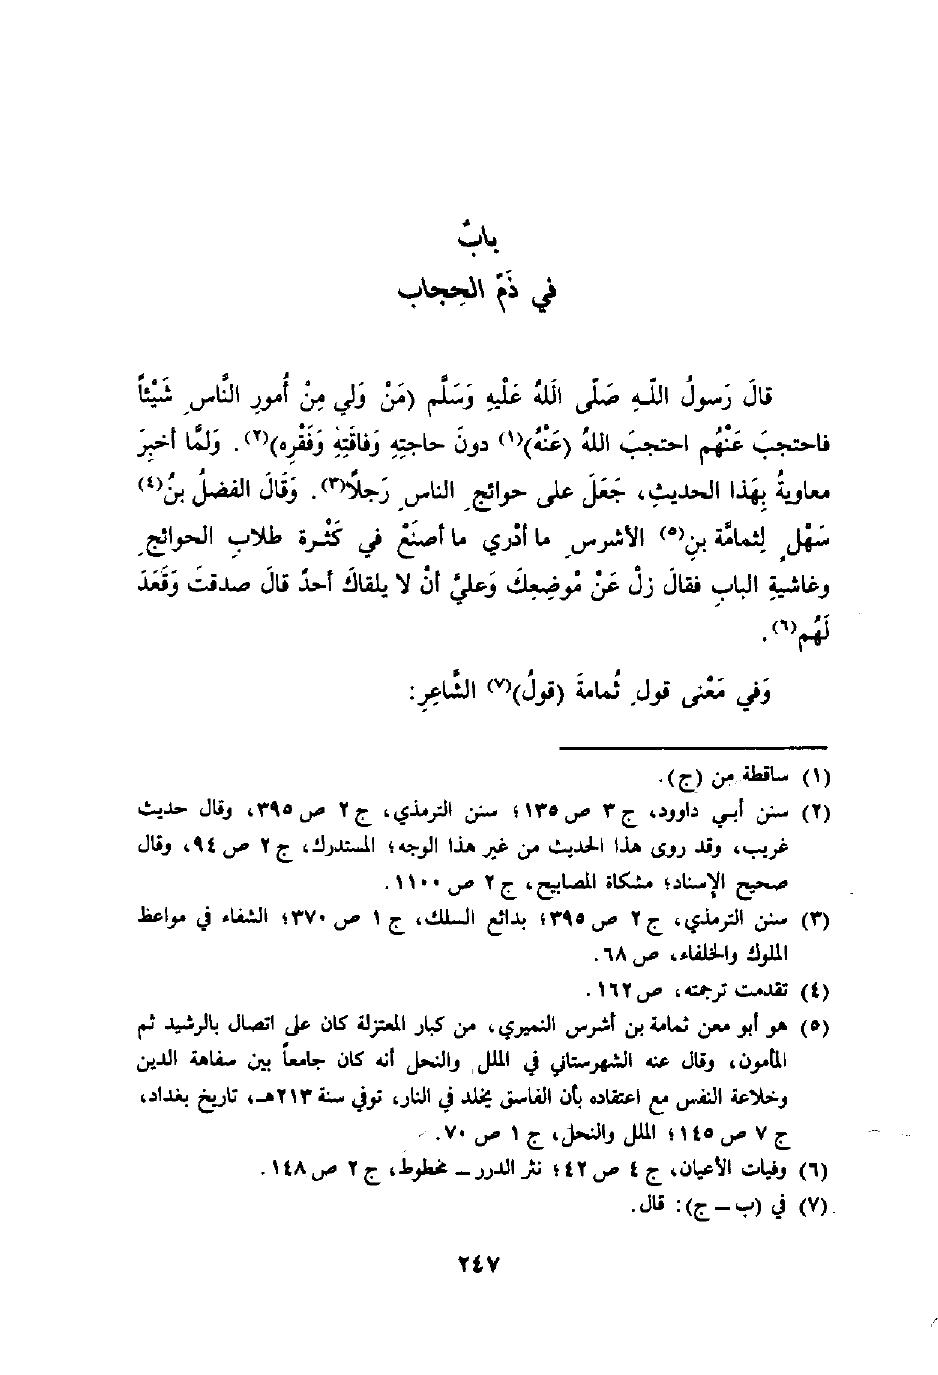 بابٌ
في ذَمِّ الحِجاب
قالَ رَسولُ اللّهِ صَلّى اللهُ عَلَيْهِ وَسَلَّم (مَنْ وَلي مِنْ أُمورِ النَّاسِ شَيْئاً
فاحتجبَ عَنْهُم احتجبَ اللهُ (عَنْهُ)(١) دونَ حاجتِهِ وَفاقَتِهِ وَفَقْرِه)(٢). وَلَمَّا أخبِرَ
معاويةُ بِهَذا الحديثِ، جَعَلَ على حوائجِ الناسِ رَجلاً(٣). وَقَالَ الفضلُ بنُ(٤)
سَهْلٍ لِثمامَّة بنِ(٥) الأشرسِ ما أدْري ما أصنَعْ في كَثْرة طلابِ الحوائجِ
وغاشيةِ البابِ فقالَ زلْ عَنْ مْوضِعِكَ وَعليَّ أنْ لا يلقاكَ أحدٌ قالَ صدقتَ وَقَعَدَ
لَهُم(٦).
وَفي مَعْنى قولِ ثُمامةَ (قولُ)(٧) الشَّاعرِ:
(١) ساقطة من (ج).
(٢) سنن أبي داوود، ج ٣ ص ١٣٥؛ سنن الترمذي، ج ٢ ص ٣٩٥، وقال حديث
غريب، وقد روى هذا الحديث من غير هذا الوجه؛ المستدرك، ج ٢ ص ٩٤، وقال
صحيح الإسناد؛ مشكاة المصابيح، ج ٢ ص ١١٠٠.
(٣) سنن الترمذي، ج ٢ ص ٣٩٥؛ بدائع السلك، ج ١ ص ٣٧٠؛ الشفاء في مواعظ
الملوك والخلفاء، ص ٦٨.
(٤) تقدمت ترجمته، ص ١٦٢.
(٥) هو أبو معن ثمامة بن أشرس النميري، من كبار المعتزلة كان على اتصال بالرشيد ثم
المأمون، وقال عنه الشهرستاني في الملل والنحل أنه كان جامعاً بين سفاهة الدين
وخلاعة النفس مع اعتقاده بأن الفاسق يخلد في النار، توفي سنة ٢١٣هـ، تاريخ بغداد،
ج ٧ ص ١٤٥؛ الملل والنحل، ج ١ ص ٧٠.
(٦) وفيات الأعيان، ج ٤ ص ٤٢؛ نثر الدرر ــ مخطوط، ج ٢ ص ١٤٨.
(٧) في (ب ــ ج): قال.
٢٤٧